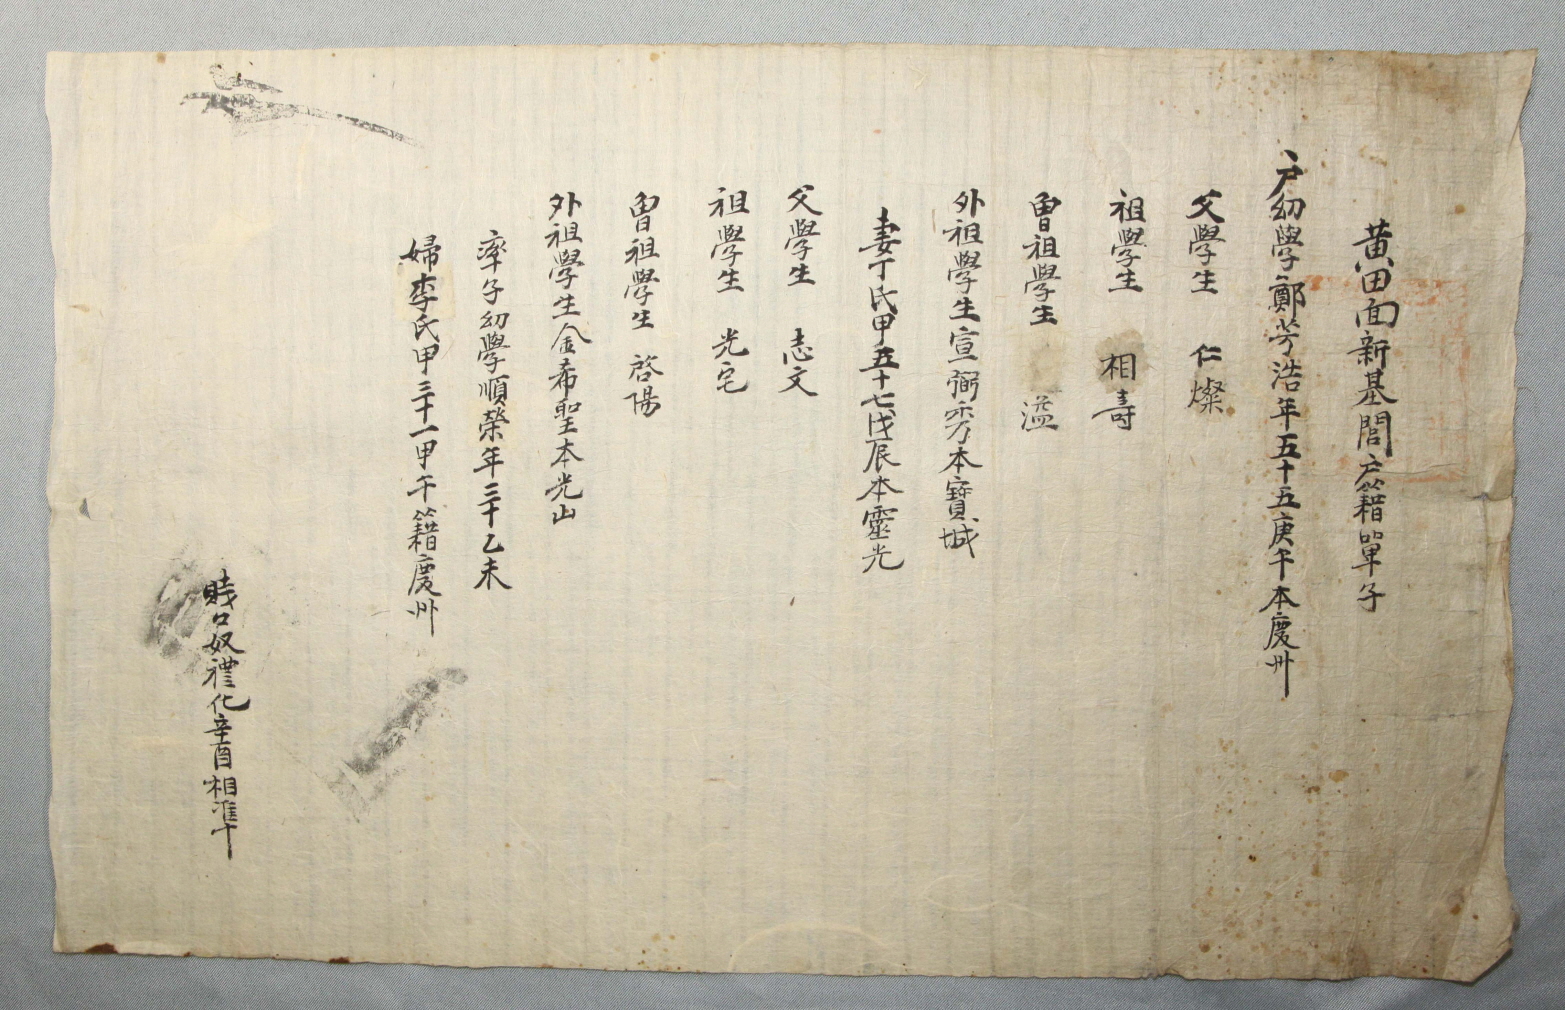 黃田面新基閭戶籍單子
戶幼學鄭芳浩年五十五庚午本慶州
父學生 仁燦
祖學生 相壽
曾祖學生 溢
外祖學生宣弼秀本寶城
妻丁氏甲五十七戊辰本靈光
父學生 志文
祖學生 光宅
曾祖學生 啓陽
外祖學生金希聖本光山
率子幼學順榮年三十乙未
婦李氏甲三十一甲午籍慶州
賤口奴禮化辛酉相準十